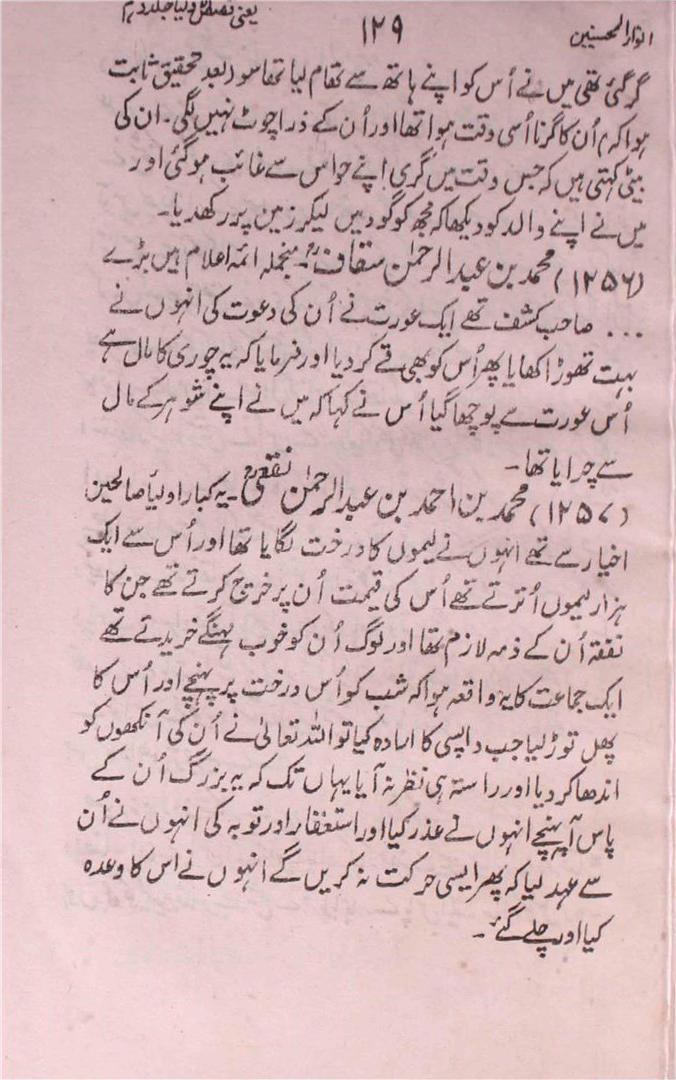 انوار المحسنین ۱۲۹ یعنی قصص اولیا جلد دہم
گر گئی تھی میں نے اُس کو اپنے ہاتھ سے تھام لیا تھا سو بعد تحقیق ثابت
ہوا کہ اُن کا گرنا اُسی وقت ہوا تھا اور اُن کے ذرا چوٹ نہیں لگی۔ ان کی
بیٹی کہتی ہیں کہ جس وقت میں گری اپنے حواس سے غائب ہو گئی اور
میں نے اپنے والد کو دیکھا کہ مجھ کو گود میں لیکر زمین پر رکھدیا۔
(۱۲۵۶) محمد بن عبد الرحمٰن سقافؒ۔ منجملہ ائمہ اعلام ہیں بڑے
... صاحب کشف تھے ایک عورت نے اُن کی دعوت کی انہوں نے
بہت تھوڑا کھایا پھر اُس کو بھی قے کر دیا اور فرمایا کہ یہ چوری کا مال ہے
اُس عورت سے پوچھا گیا اُس نے کہا کہ میں نے اپنے شوہر کے مال
سے چرایا تھا۔
(۱۲۵۷) محمد بن احمد بن عبد الرحمٰن نقعیؒ۔ یہ کبار اولیا صالحین
اخیار سے تھے انہوں نے لیموں کا درخت لگایا تھا اور اُس سے ایک
ہزار لیموں اُترتے تھے اُس کی قیمت اُن پر خرچ کرتے تھے جن کا
نفقۃ اُن کے ذمہ لازم تھا اور لوگ اُن کو خوب مہنگے خریدتے تھے
ایک جماعت کا یہ واقعہ ہوا کہ شب کو اُس درخت پر پہنچے اور اُس کا
پھل توڑ لیا جب واپسی کا ارادہ کیا تو اللہ تعالیٰ نے اُن کی آنکھوں کو
اندھا کر دیا اور راستہ ہی نظر نہ آیا یہاں تک کہ یہ بزرگ اُن کے
پاس آ پہنچے انہوں نے عذر کیا اور استغفار اور توبہ کی انہوں نے اُن
سے عہد لیا کہ پھر ایسی حرکت نہ کریں گے انہوں نے اس کا وعدہ
کیا اور چلے گئے۔